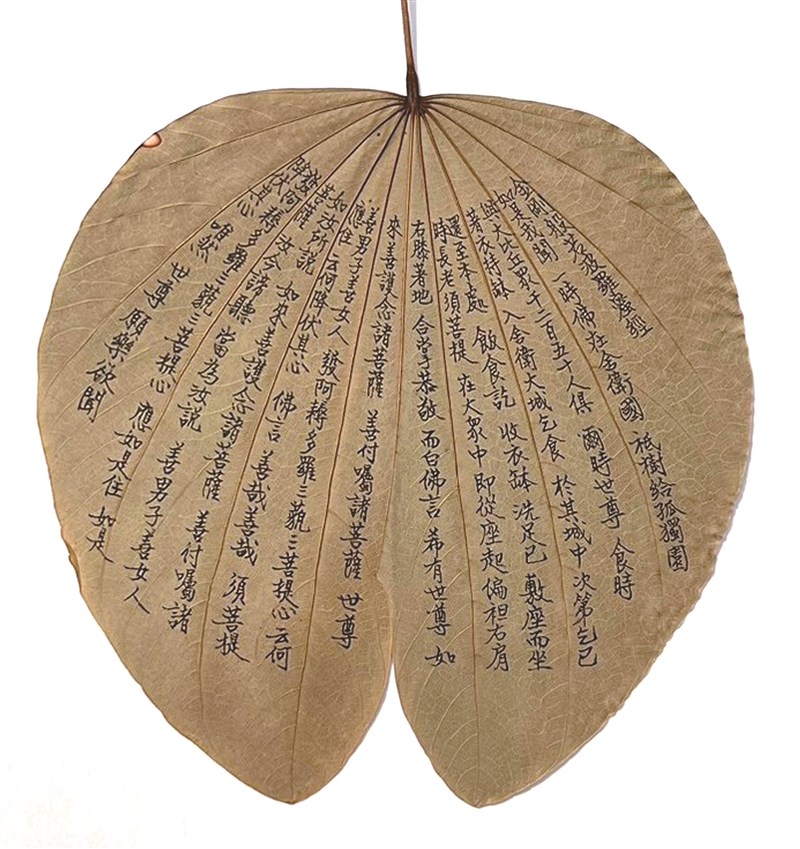 金剛般若波羅蜜經
如是我聞 一時佛在舍衛國 祇樹給孤獨園
與大比丘眾千二百五十人俱 爾時世尊 食時
著衣持缽 入舍衛大城乞食 於其城中 次第乞已
還至本處 飯食訖 收衣缽 洗足已 敷座而坐
時長老須菩提 在大眾中 即從座起 偏袒右肩
右膝著地 合掌恭敬 而白佛言 希有世尊 如
來善護念諸菩薩 善付囑諸菩薩 世尊
善男子善女人 發阿耨多羅三藐三菩提心 云何
應住 云何降伏其心 佛言 善哉善哉 須菩提
如汝所說 如來善護念諸菩薩 善付囑諸
菩薩 汝今諦聽 當為汝說 善男子善女人
發阿耨多羅三藐三菩提心 應如是住 如是
降伏其心 唯然 世尊 願樂欲聞